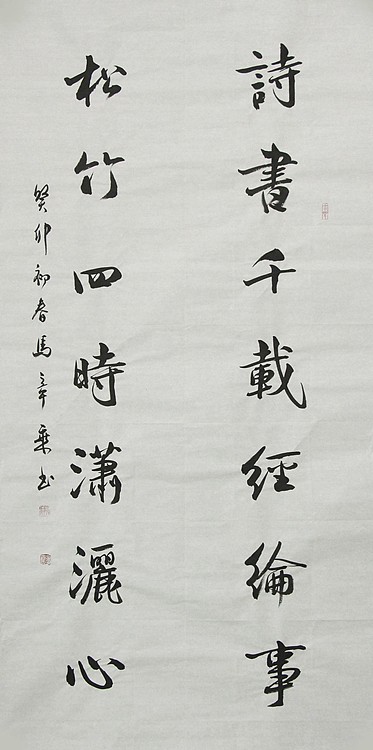 詩書千載經綸事
松竹四時瀟灑心
癸卯初春馬章乘书